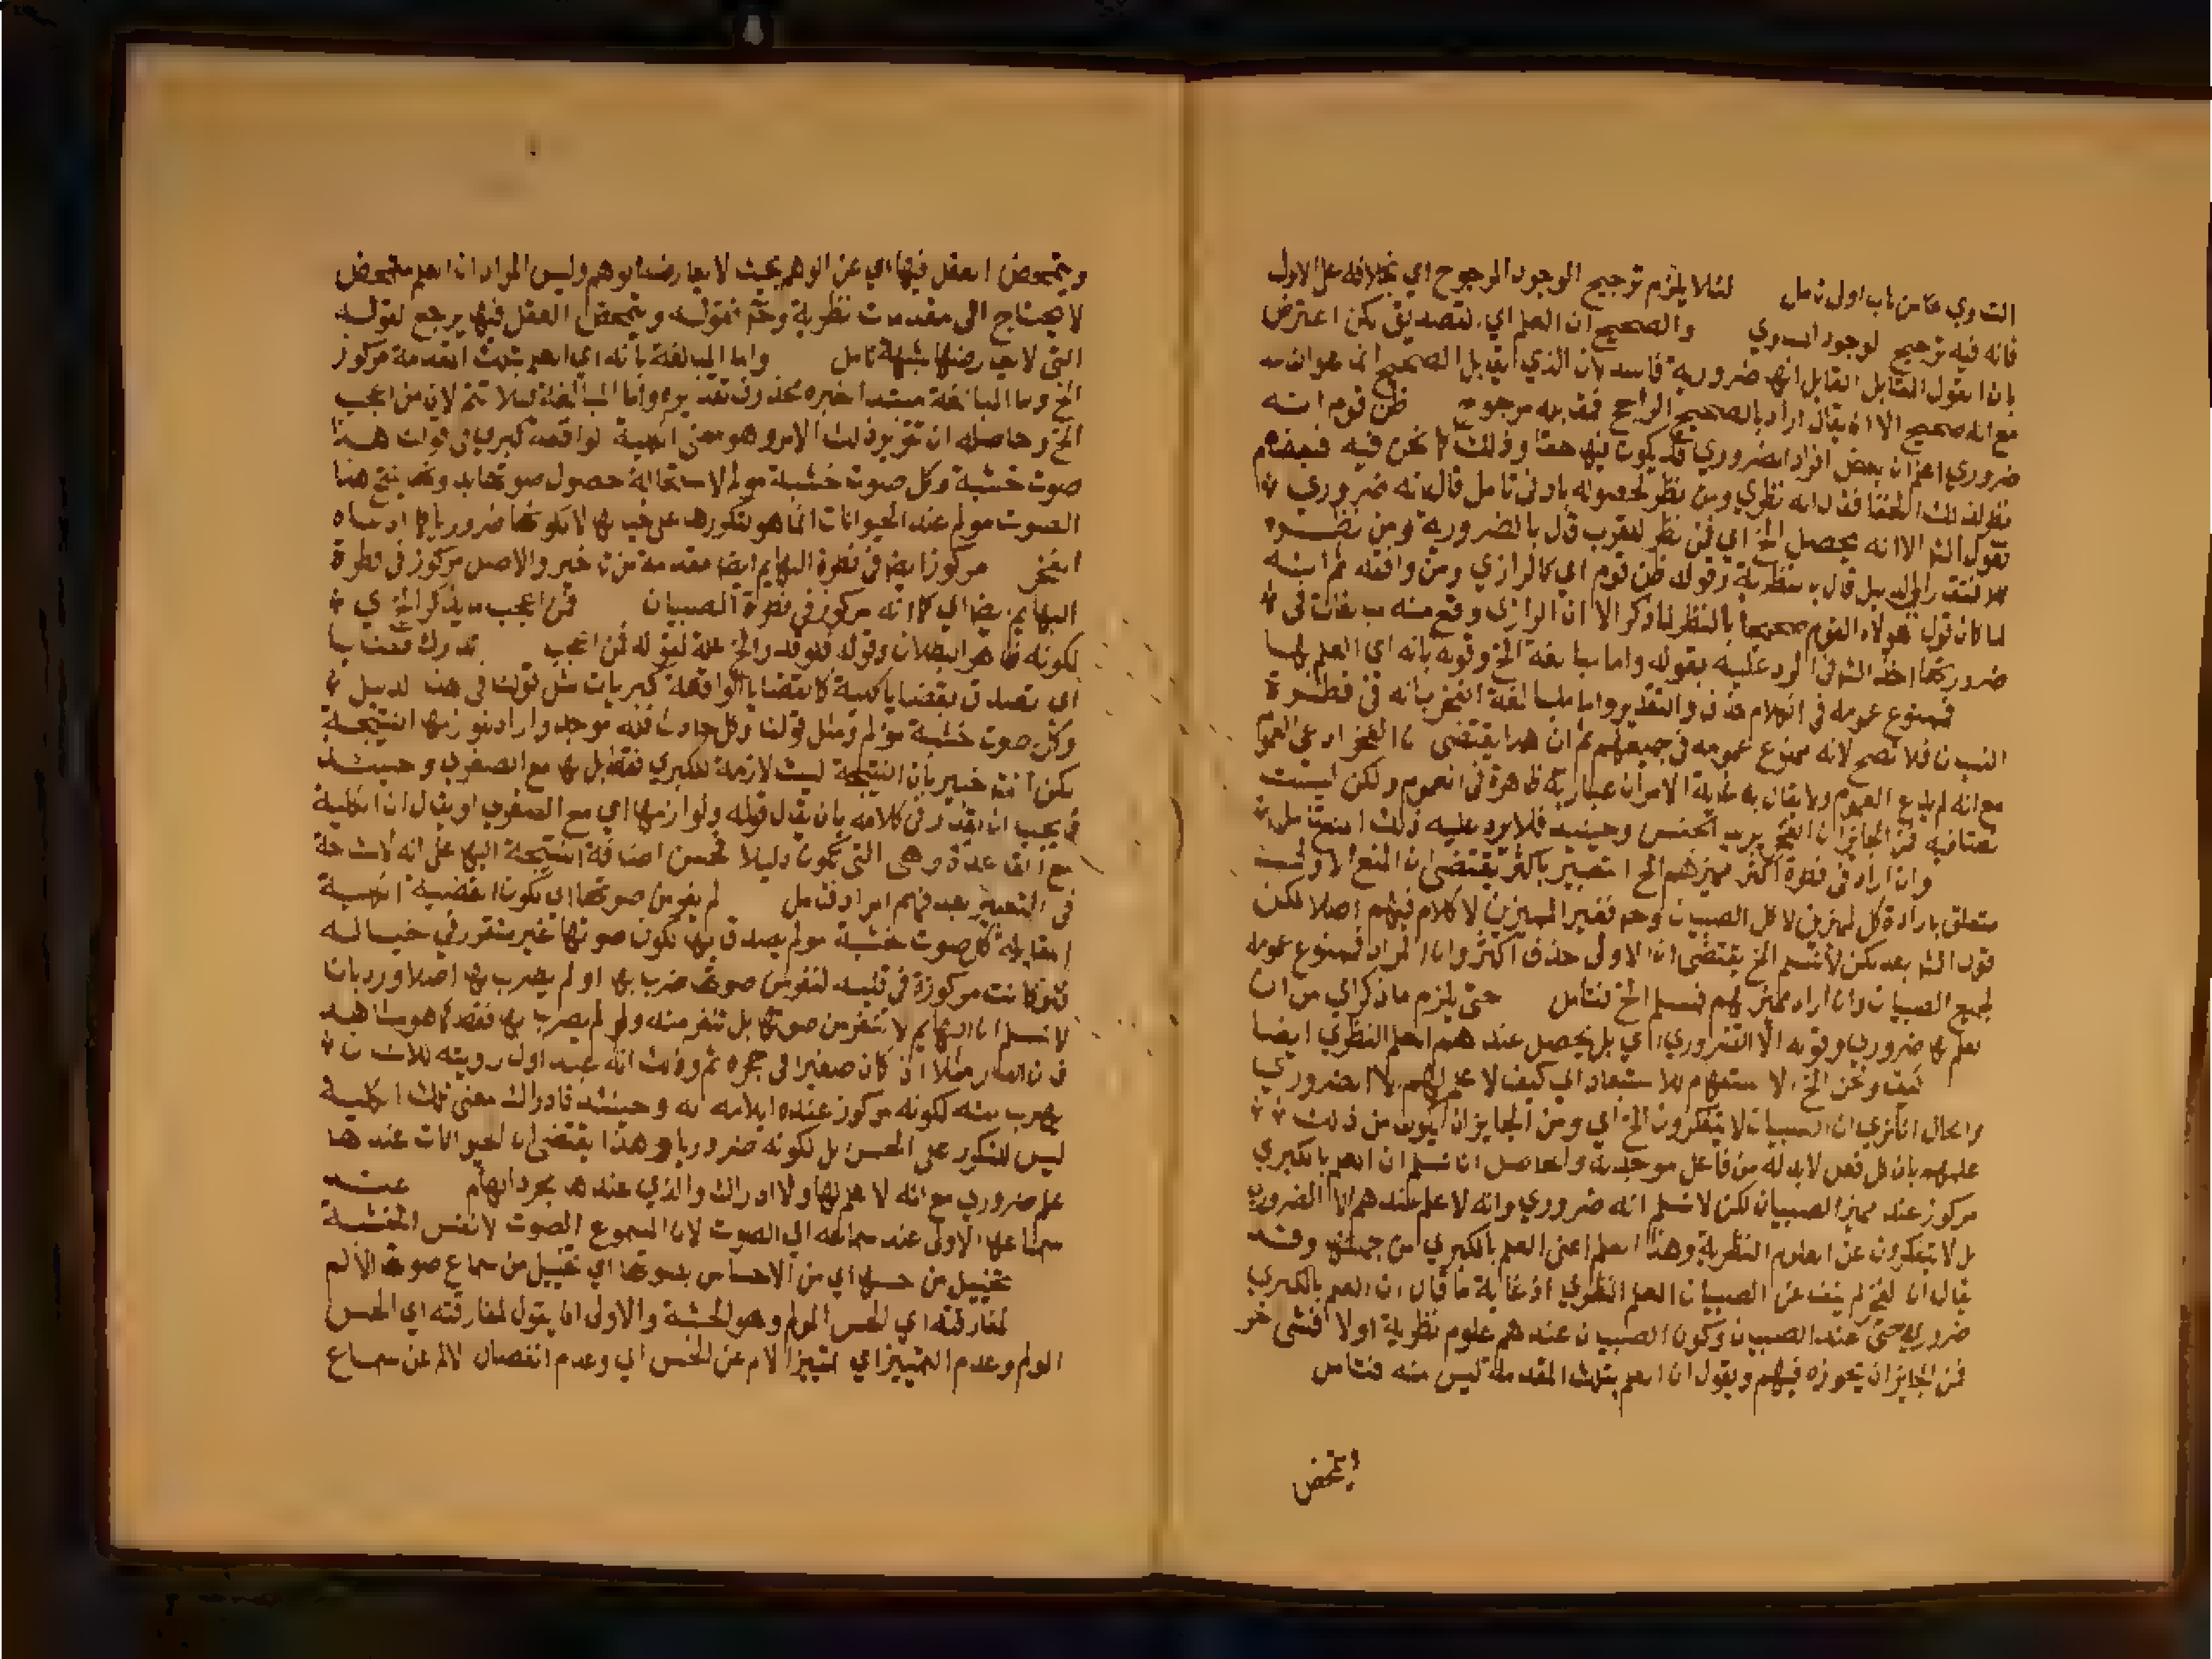 التساوي عكس باب اول تامل لئلا يلزم ترجيح الوجود المرجوح اي بخلافه على الاول
فانه فيه ترجيح لوجود المساوي والصحيح ان العلم اي التصديق لكن اعترض
بان القول المقابل القايل انها ضرورية فاسد لان الذي يقابل الصحيح انما هو الفاسد
مع انه صحيح الا ان يقال اراد بالصحيح الراجح فمقابله مرجوح ظن قوم انه
ضروري اعلم ان بعض افراد الضروري قد يكون فيها خفا وذلك كما نحن فيه فبعضهم
نظر لذلك الخفا فقال انه نظري ومن نظر لحصوله بادنى تامل قال انه ضروري
نقول الش الا انه يحصل الخ اي فمن نظر للقرب قال بالضرورية ومن نظر
للافتقار الى الدليل قال بنظرية وقوله ظن قوم اي كالرازي ومن وافقه ثم انه
لما كان قول هولاء القوم صحيحا بالنظر لما ذكر الا ان الرازي وقع منه مبالغات في
ضروريتها اخذ الش في الرد عليه بقوله واما مبالغة الخ وقوله بانه اي العلم بها
فممنوع عمومه في الكلام حذف والتقدير واما مبالغة الفخر بانه في فطرة
الصبيان فلا تصح لانه ممنوع عمومه في جميعهم ثم ان هذا يقتضي ان الفخر ادعى العموم
مع انه لم يدع العموم ولا يقال به غاية الامر ان عبارته ظاهرة في العموم ولكن ليست
نصا فيه فمن الجايز ان الفخر يريد الجنس وحينيذ فلا يرد عليه ذلك المنع تامل
وان اراد في فطرة اكثر مميزهم الخ التعبير باكثر يقتضي ان المنع الاول
متعلق بارادة كل المميزين لا كل الصبيان وحم فغير المميزين لا كلام فيهم اصلا لكن
قول الش بعد لكن لا نسلم الخ يقتضي ان الاولى حذف اكثر وان المراد فممنوع عمومه
لجميع الصبيان وان اراد المميز لهم فنسلم الخ فتامل حتى يلزم ما ذكر اي من ان
العلم بها ضروري وقوله الا الضروري اي بل يحصل عندهم العلم النظري ايضا
كيف ونحن الخ الاستفهام للاستبعاد اي كيف لا علم لهم الا الضروري
والحال انا نرى ان الصبيان لا يتفكرون الخ اي ومن الجايز ان يكون من ذلك
علمهم بان كل فعل لابد له من فاعل موجد به والحاصل انا نسلم ان العلم بالكبرى
مركوز عند مميز الصبيان لكن لا نسلم انه ضروري وانه لا علم عندهم الا الضروري
بل لا ينفكون عن العلوم النظرية وهذا العلم اعني العلم بالكبرى من جملتها وقد
يقال ان الفخر لم ينف عن الصبيان العلم النظري اذ غاية ما قال ان العلم بالكبرى
ضروري حتى عند الصبيان وكون الصبيان عندهم علوم نظرية اولا فشي اخر
فمن الجايز ان يجوزه فيهم ويقول ان العلم بتلك المقدمة ليس منه فتامل
ويتمحض
ويتمحض العقل فيها اي عن الوهم بحيث لا يعارضه الوهم وليس المراد ان العلم متمحض
لا يحتاج الى مقدمات نظرية وحم فقوله ويتمحض العقل فيها يرجع لقوله
التي لا يعارضها شبهة تامل واما المبالغة بانه اي العلم بتلك المقدمة مركوز
الخ واما المبالغة مبتدا خبره محذوف تقديره واما المبالغة فلا تتم لان من اعجب
الخ وحاصله ان تقرير ذلك الامر وهو معنى الكلية الواقعة كبرى في قولك هذا
صوت خشبة وكل صوت خشبة مولم لاستحالة حصول صوتها به ونحو ينتج هذا
الصوت مولم عند الحيوانات انما هو لتكررها على قلبها لا لكونها ضروريا كما ادعاه
الفخر مركوز ايضا في فطرة البهايم ايضا مقدمة من تاخير والاصل مركوز في فطرة
البهايم ايضا اي كما انه مركوز في فطرة الصبيان فمن اعجب ما يذكر الخ اي
لكونه ظاهر البطلان وقوله فلو قدر الخ علة لقوله فمن اعجب تدرك قضايا
اي تصدق بقضايا كلية كالقضايا الواقعة كبريات مثل قولك في هذا الدليل
وكل صوت خشبة مولم ومثل قولنا وكل حادث فله موجد واراد بلوازمها النتيجة
لكن انت خبير بان النتيجة ليست لازمة للكبرى فقط بل لها مع الصغرى وحينيذ
فيجب ان يقدر في كلامه بان يقال قوله ولوازمها اي مع الصغرى او يقال ان الكلية
مع القاعدة وهي التي تكون دليلا تحسن اضافة النتيجة اليها على انه لا مشاحة
في التعبير بعد فهم المراد فتامل لم يفر من صوتها اي لكون القضية الكلية
القايلة كل صوت خشبة مولم يصدق بها لكون صوتها غير متقرر في خياله
فلو كانت مركوزة في قلبه لنفر من صوتها ضرب بها او لم يضرب بها اصلا ورد بان
لا نسلم ان البهايم لا تنفر من صوتها بل تنفر منه ولو لم يضرب بها فقد كما هو مشاهد
في الحمار مثلا اذا كان صغيرا في حجره ثم وذلك انه عند اول رويته للانسان
يهرب منه لكونه مركوز عنده ايلامه له وحينيذ فادراك معنى تلك الكلية
ليس للتكرر على الحس بل لكونه ضروريا وهذا يقتضي ان الحيوانات عندها
علم ضروري مع انه لا علم لها ولا ادراك والذي عندها مجرد الهام عند
سماعها الاولى عند سماعه اي الصوت لان المسموع الصوت لا نفس الخشبة
تخييل من حسها اي من الاحساس بصوتها اي تخييل من سماع صوتها الالم
لمقارنته اي الحس المولم وهو الخشبة والاولى ان يقول لمقارنته اي الحس
المولم وعدم التمييز اي تمييز الالام عن الحس اي وعدم انفصال الالم عن سماع